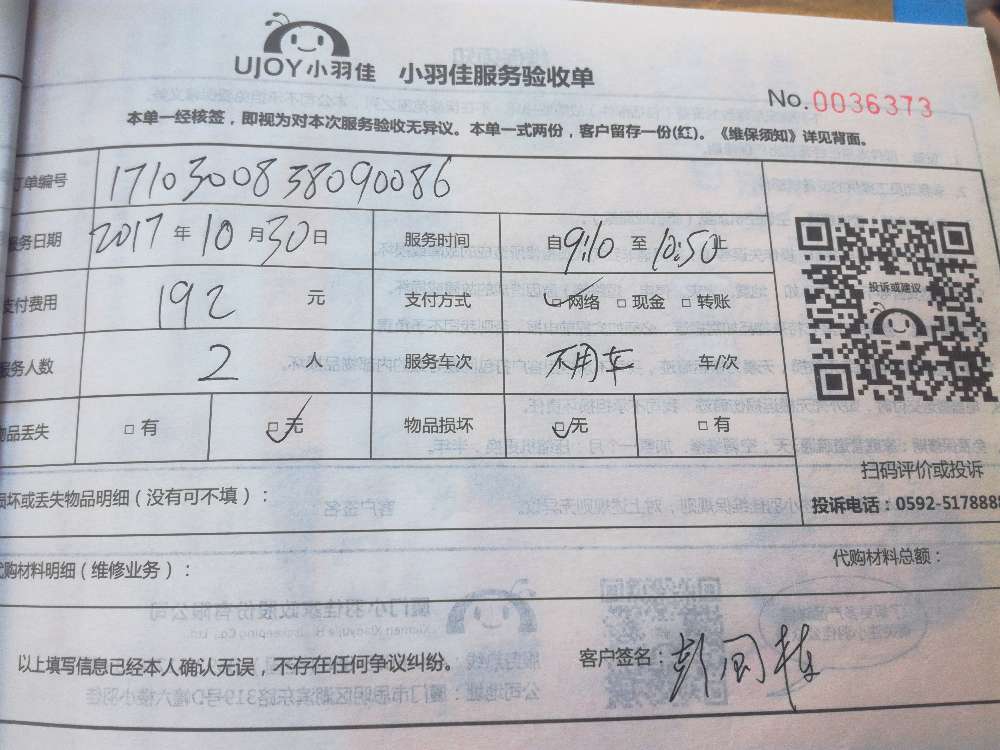 UJOY小羽佳 小羽佳服务验收单
No.0036373
本单一经核签，即视为对本次服务验收无异议。本单一式两份，客户留存一份(红)。《维保须知》详见背面。
订单编号 1710300838090086
服务日期 2017年10月30日 服务时间 自9:10至10:50止
投诉或建议
支付费用 192 元 支付方式 网络 □现金 □转账
服务人数 2 人 服务车次 不用车 车/次
物品丢失 □有 □无 物品损坏 □无 □有
扫码评价或投诉
损坏或丢失物品明细（没有可不填）：
投诉电话：0592-517888
代购材料明细（维修业务）：
代购材料总额：
以上填写信息已经本人确认无误，不存在任何争议纠纷。
客户签名：彭